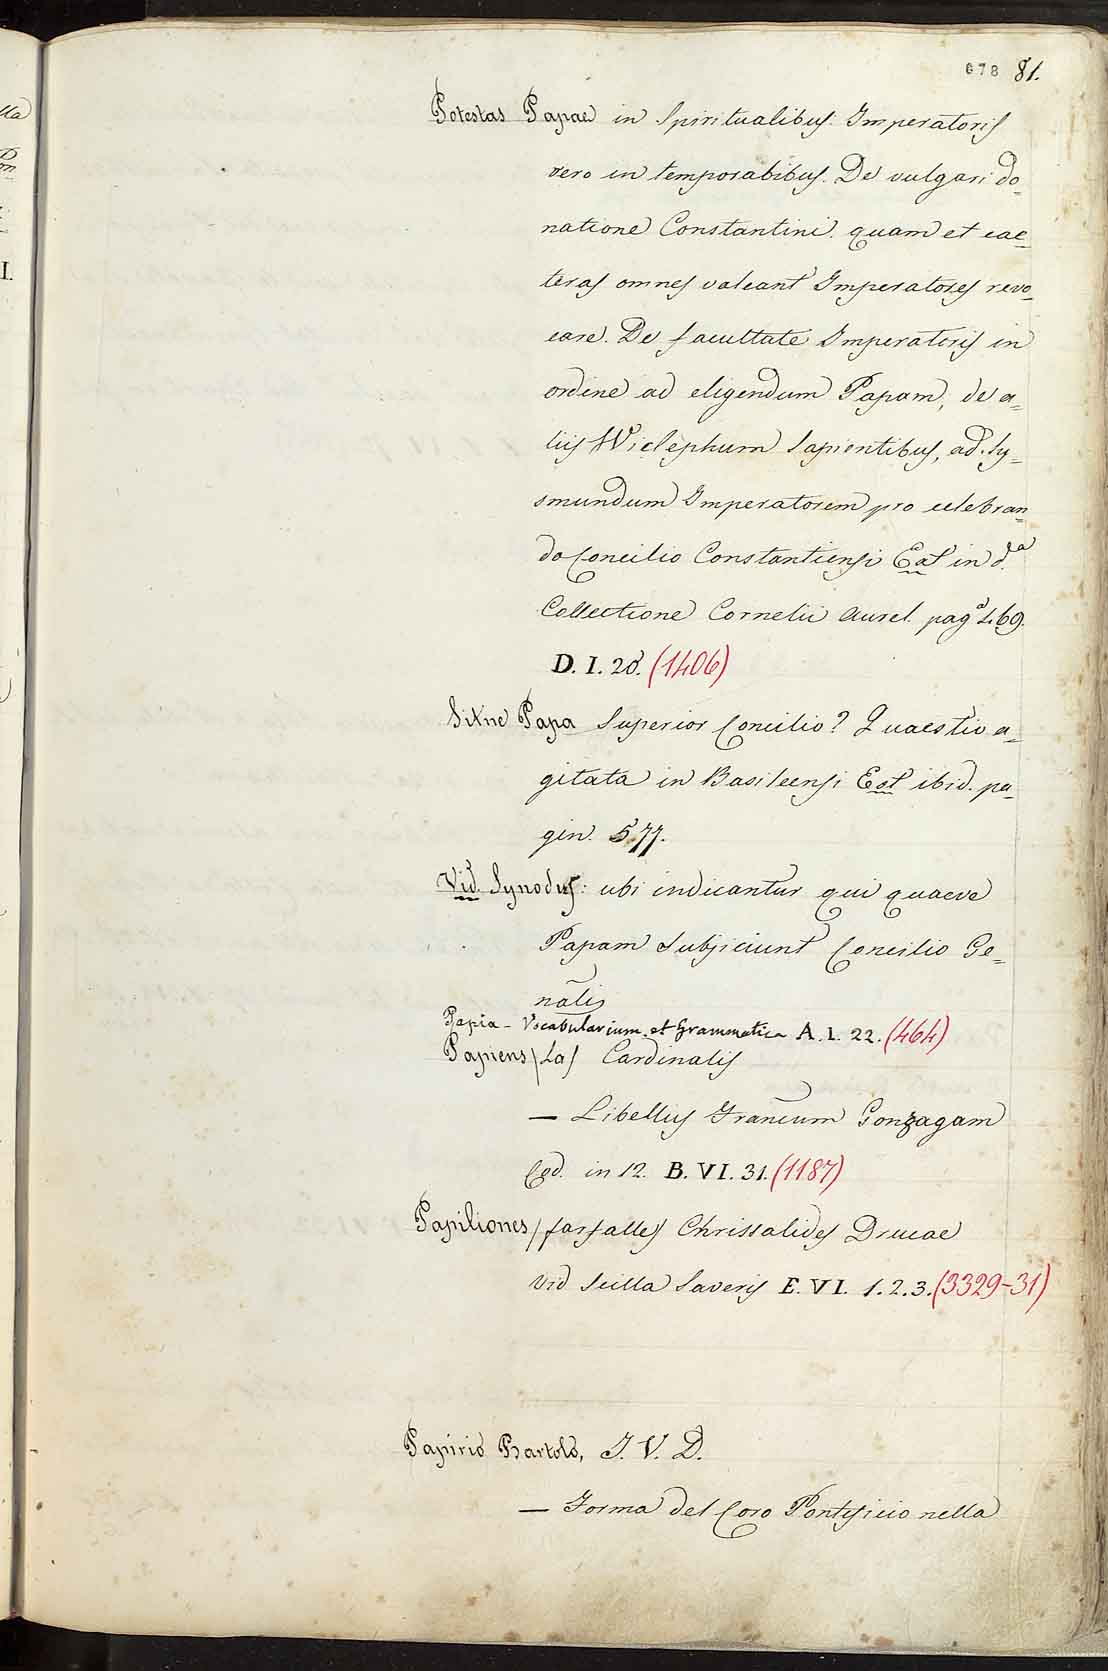 678 81.
Potestas Papae in Spiritualibus. Imperatoris
vero in temporabibus. De vulgari do_
natione Constantini. quam et cae_
teras omnes valeant Imperatores revo_
care. De facultate Imperatoris in
ordine ad eligendum Papam, de a_
liis Wiclephum Sapientibus, ad. Sy_
smundum Imperatorem pro celebran_
do Concilio Constantiensi Est in d.ᵃ
Collectione Cornelii Aurel. pagᵃ 469.
D. I. 28. (1406)
Sitne Papa Superior Concilio? Quaestio a_
gitata in Basileensi Est ibid. pa_
gin. 577.
Vid. Synodus: ubi indicantur qui quaeve
Papam Subjiciunt Concilio Ge_
nãlis
Papia - Vocabularium et Grammatica A. I. 22. (464)
Papiens /La/ Cardinalis
— Libellus Francum Gonzagam
Cod. in 12. B. VI. 31. (1187)
Papiliones /farfalle/ Chrissalides Drucae
Vid Scilla Saveris E. VI. 1. 2. 3. (3329-31)
Papirio Bartolo, I. V. D.
— Forma del Coro Pontificio nella